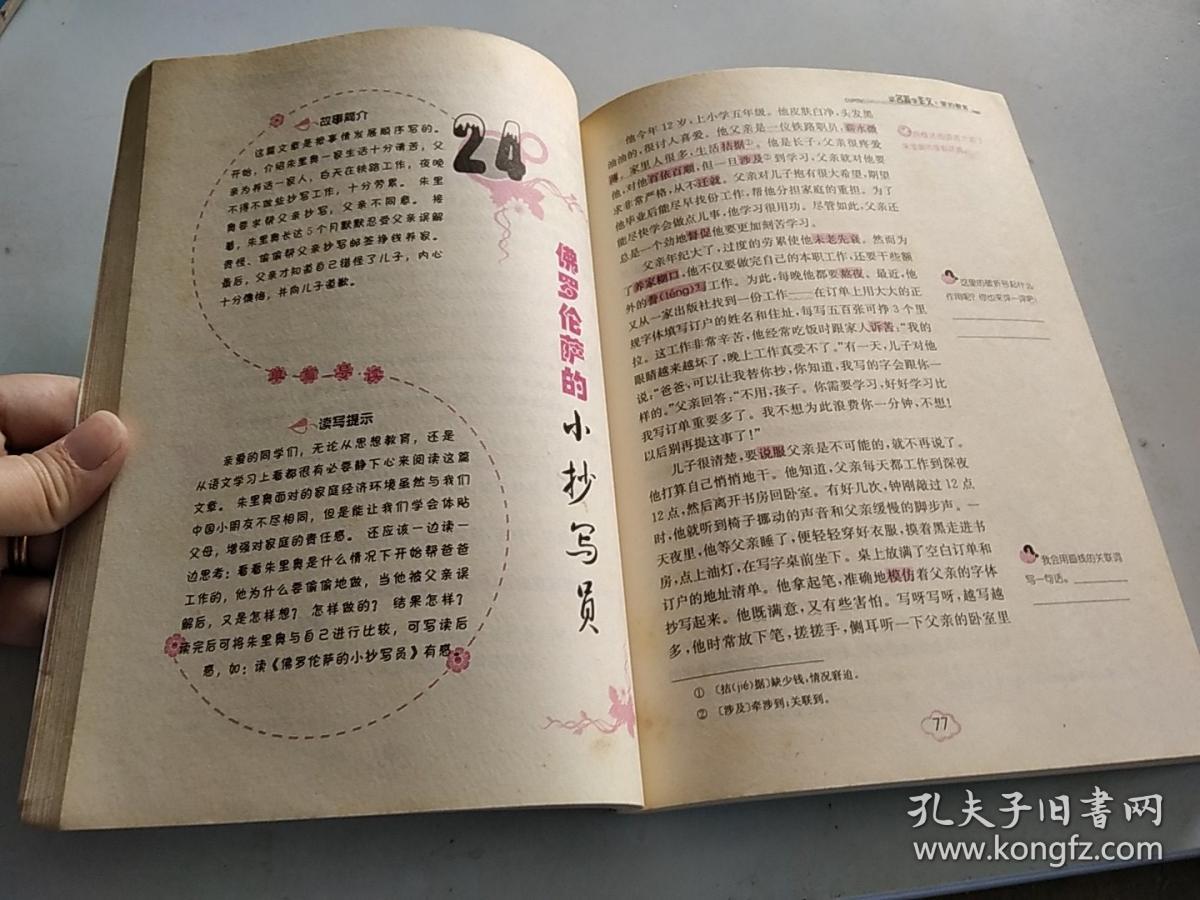 故事简介
这篇文章是按事情发展顺序写的。
开始，介绍朱里奥一家生活十分清苦，父
亲为养活一家人，白天在铁路工作，夜晚
不得不做些抄写工作，十分劳累。 朱里
奥要求帮父亲抄写，父亲不同意。 接
着，朱里奥长达5个月默默忍受父亲误解
责怪、偷偷帮父亲抄写邮签挣钱养家。
最后，父亲才知道自己错怪了儿子，内心
十分懊悔，并向儿子道歉。
24
佛罗伦萨的
小抄写员
读写提示
亲爱的同学们，无论从思想教育，还是
从语文学习上看都很有必要静下心来阅读这篇
文章。 朱里奥面对的家庭经济环境虽然与我们
中国小朋友不尽相同，但是能让我们学会体贴
父母，增强对家庭的责任感。 还应该一边读一
边思考：看看朱里奥是什么情况下开始帮爸爸
工作的，他为什么要偷偷地做，当他被父亲误
解后，又是怎样想？ 怎样做的？ 结果怎样？
读完后可将朱里奥与自己进行比较，可写读后
感，如：读《佛罗伦萨的小抄写员》有感。
他今年12岁，上小学五年级。他皮肤白净，头发黑
油油的，很讨人喜爱。他父亲是一位铁路职员，薪水微
薄，家里人很多，生活拮据①。他是长子，父亲很疼爱
他，对他百依百顺，但一旦涉及②到学习，父亲就对他要
求非常严格，从不迁就。父亲对儿子抱有很大希望，期望
他毕业后能尽早找份工作，帮他分担家庭的重担。为了
能尽快学会做点儿事，他学习很用功。尽管如此，父亲还
总是一个劲地督促他要更加刻苦学习。
父亲年纪大了，过度的劳累使他未老先衰。然而为
了养家糊口，他不仅要做完自己的本职工作，还要干些额
外的誊(téng)写工作。为此，每晚他都要熬夜。最近，他
又从一家出版社找到一份工作——在订单上用大大的正
规字体填写订户的姓名和住址，每写五百张可挣3个里
拉。这工作非常辛苦，他经常吃饭时跟家人诉苦：“我的
眼睛越来越坏了，晚上工作真受不了。”有一天，儿子对他
说：“爸爸，可以让我替你抄，你知道，我写的字会跟你一
样的。”父亲回答：“不用，孩子。你需要学习，好好学习比
我写订单重要多了。我不想为此浪费你一分钟，不想！
以后别再提这事了！”
儿子很清楚，要说服父亲是不可能的，就不再说了。
他打算自己悄悄地干。他知道，父亲每天都工作到深夜
12点，然后离开书房回卧室。有好几次，钟刚敲过12点
时，他就听到椅子挪动的声音和父亲缓慢的脚步声。一
天夜里，他等父亲睡了，便轻轻穿好衣服，摸着黑走进书
房，点上油灯，在写字桌前坐下。桌上放满了空白订单和
订户的地址清单。他拿起笔，准确地模仿着父亲的字体
抄写起来。他既满意，又有些害怕。写呀写呀，越写越
多，他时常放下笔，搓搓手，侧耳听一下父亲的卧室里
这里的破折号起什么
作用呢？你也来评一评吧！
我会用画线的关联词
写一句话。
① 〔拮(jié)据〕缺少钱，情况窘迫。
② 〔涉及〕牵涉到；关联到。
77
孔夫子旧書网
www.kongfz.com